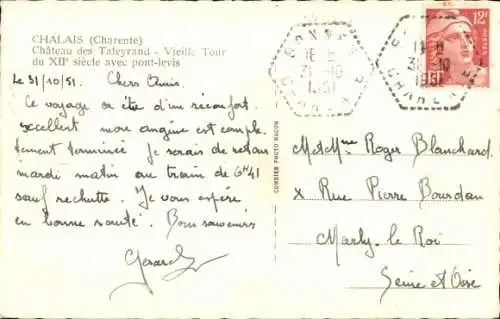 CHALAIS (Charente)
Château des Taleyrand - Vieille Tour
du XIIe siècle avec pont-levis
12F
BONNES
18 H
31-10
1951
CHARENTE
18 H
31-10
1951
CHARENTE
Le 31/10/51. Chers Amis.
Ce voyage a été d'un réconfort
excellent mon angine est complè
tement terminée Je serais de retour
mardi matin au train de 6H41
sauf rechutte. Je vous espère
en bonne santé. Bons souvenirs
Gérard
COMBIER PHOTO MACON
Met Mme Roger Blanchard
x Rue Pierre Bourdan
Marly. le Roi
Seine et Oise